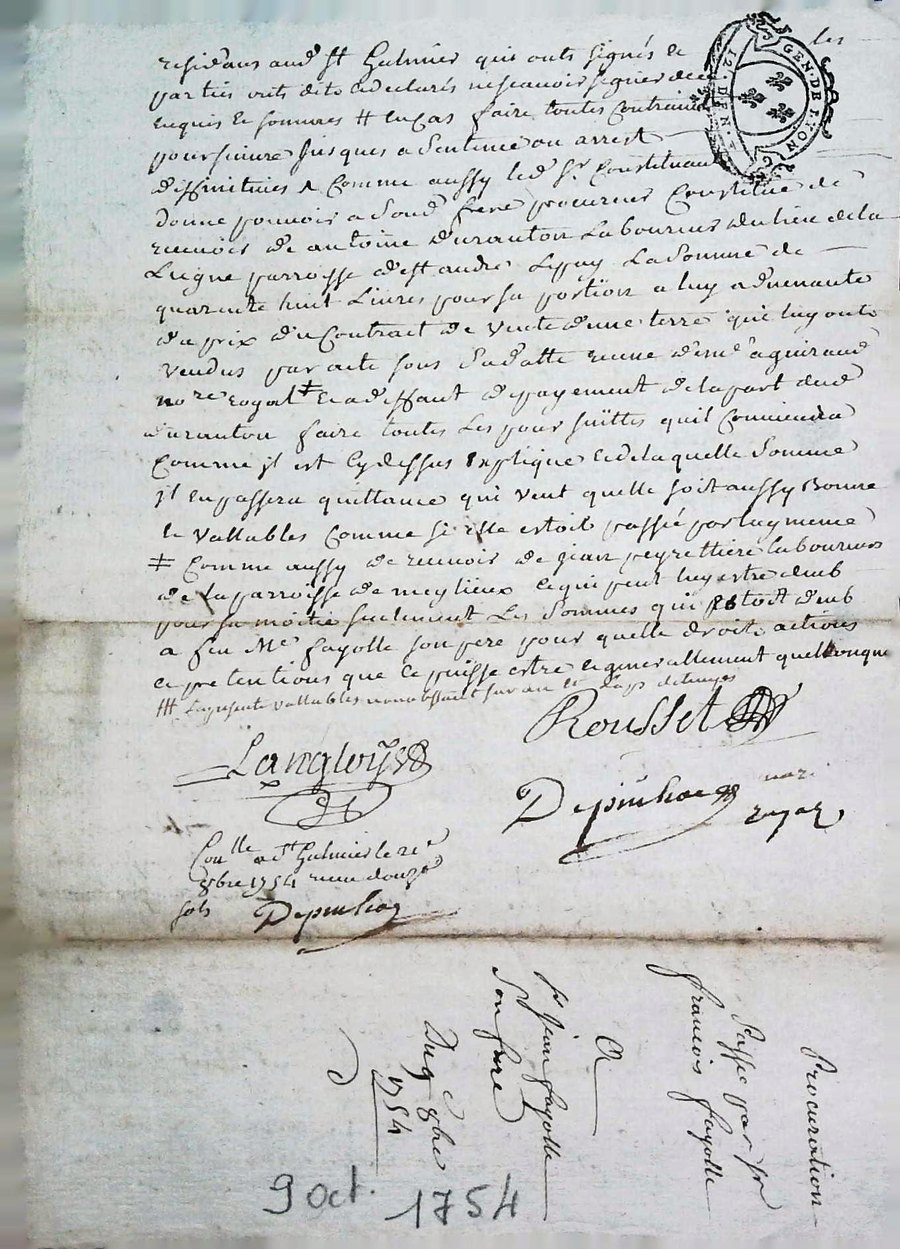 residans aud St Galmier qui onts signés &
parties onts dits & declarés ne scavoir signer de ce
enquis & sommes # en cas faire toutes contraintes
poursuivre jusques a sentence ou arrest
diffinitives & comme aussy led Sr Constituant
donne pouvoir a sond frere procureur constitué de
recevoir de antoine duranton laboureur du lieu de la
Ligne parroisse de st andre Lepuy la somme de
quarente huit Livres pour sa portion a luy advenante
du prix du contract de vente d'une terre qui luy onts
vendus par acte sous sa datte receue de me aguiraud
nore royal ‡ & a deffaut de payement de la part dud
duranton faire toutes les poursuittes quil conviendra
comme jl est cy dessus expliqué & de laquelle somme
jl en passera quittance qui veut quelle soit aussy bonne
& vallables comme si elle estoit passée par luy meme
‡ comme aussy de recevoir de jean peyrettiere laboureur
de la parroisse de meylieux ce qui peut luy estre dub
pour sa moitié seulement les sommes qui estoit dub
a feu Me fayolle son pere pour quelle droits actions
& pretentions que ce puisse estre & generallement quelconque
# la presente vallables nonobstant sur an & laps de temps
les
GEN. DE LYON
12. DEN.
Langloys
Rousset
Depinhac
royal
Conlle a St Galmier le 21e
8bre 1754 receu douze
sols Depinhac
Procuration
Passé par Sr
francois fayolle
A
Sr Jean fayolle
Son frere
Du 9e 8bre
1754
9 Oct. 1754